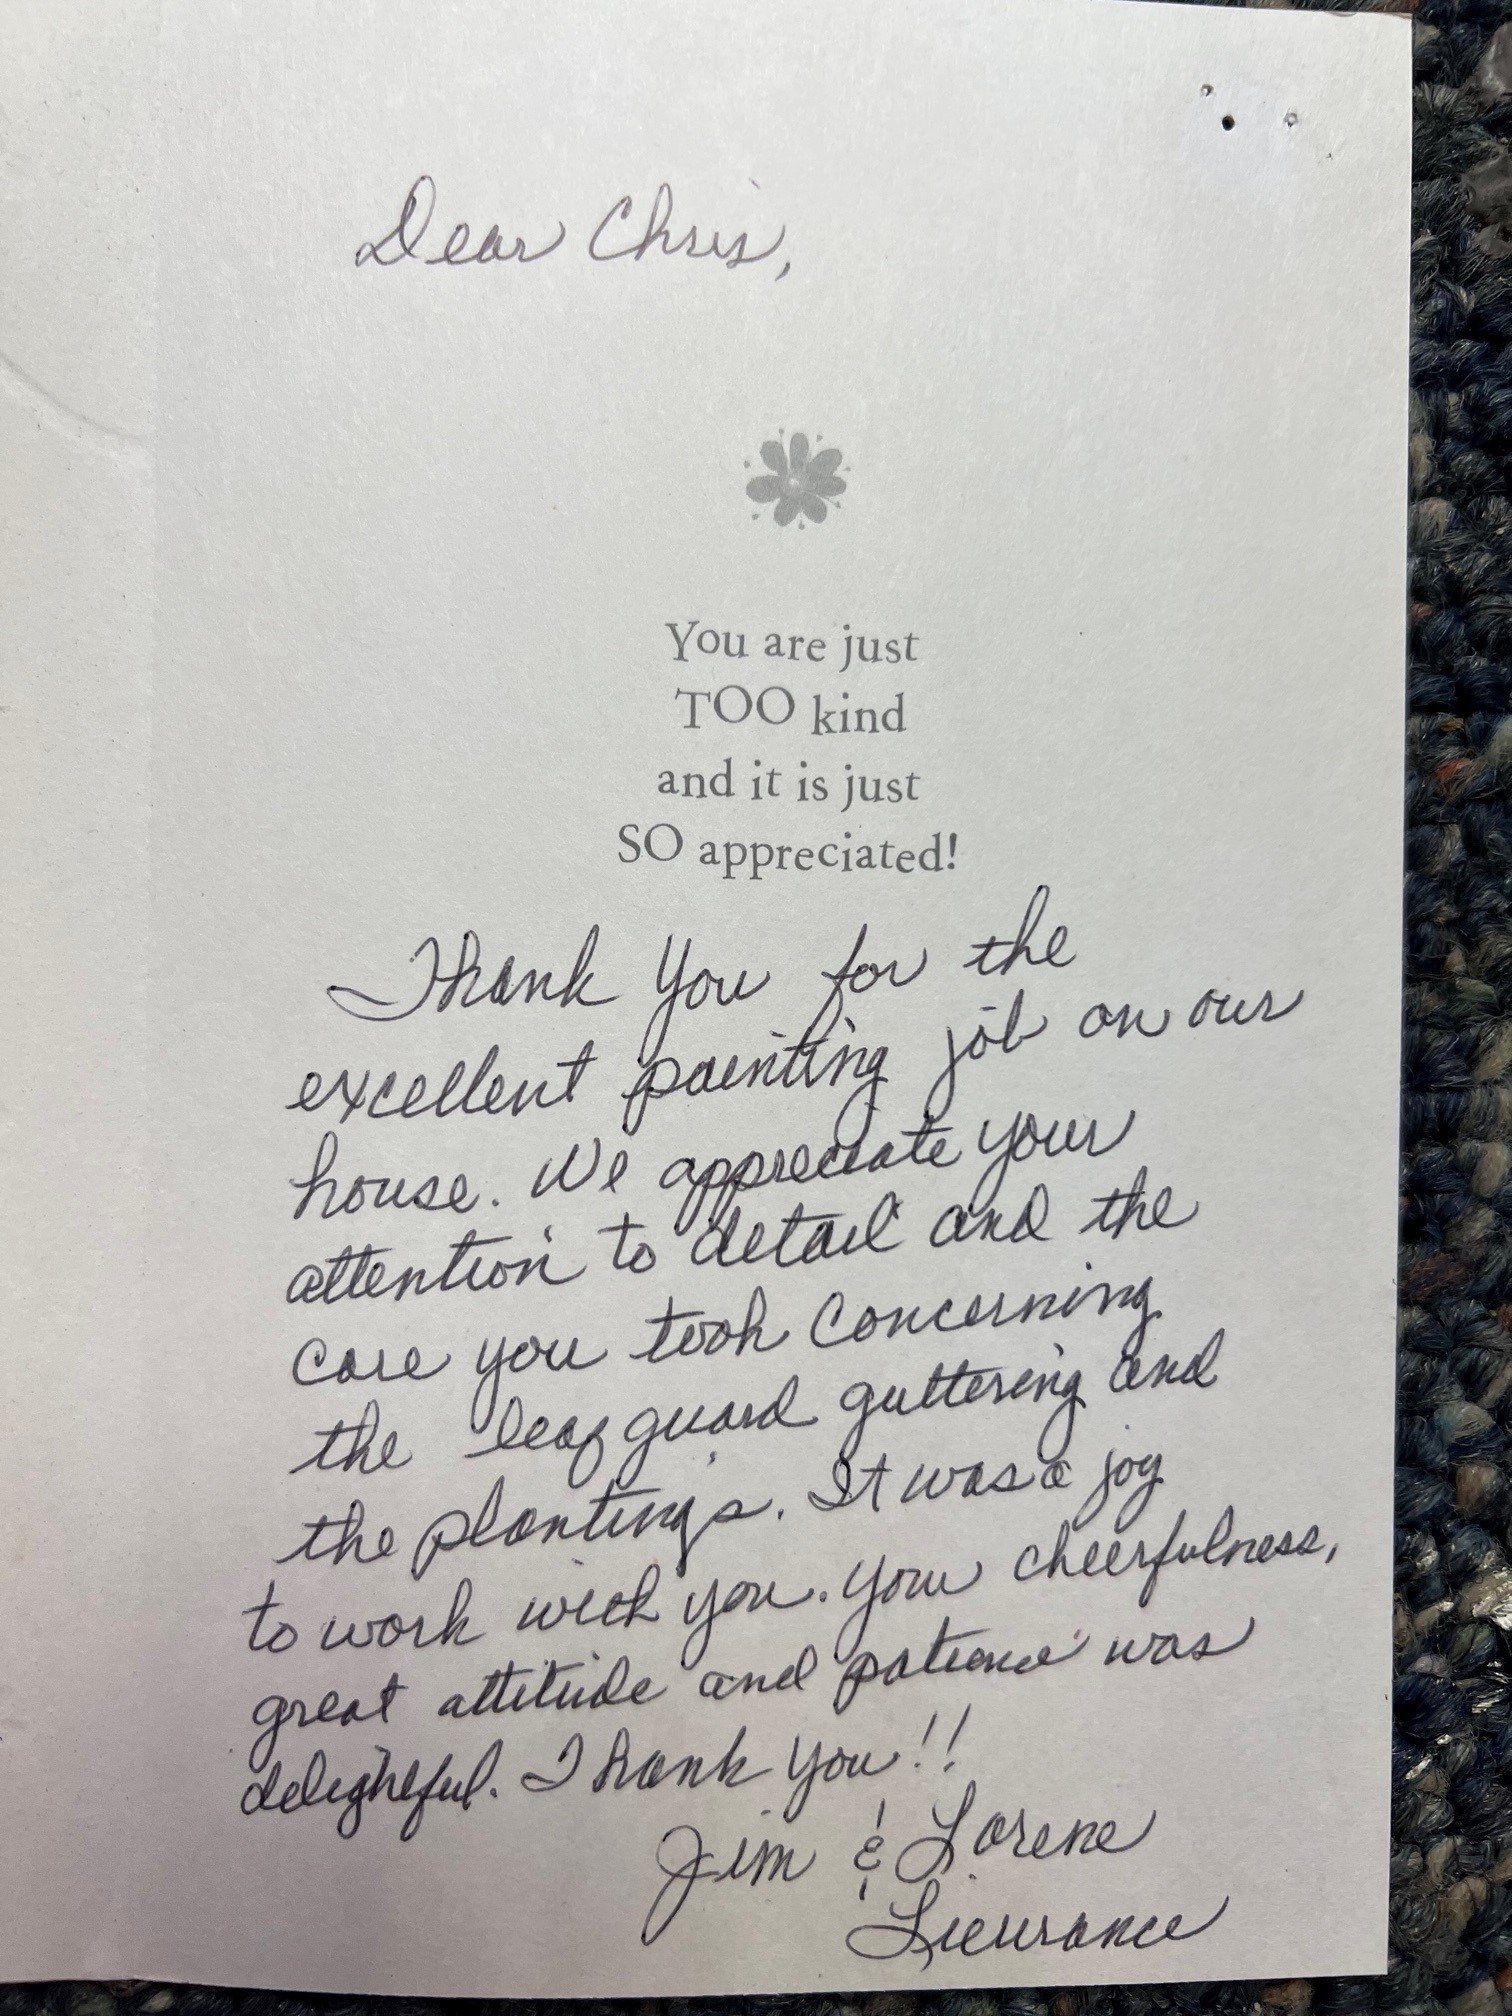 Dear Chris,
You are just
TOO kind
and it is just
SO appreciated!
Thank You for the
excellent painting job on our
house. We appreciate your
attention to detail and the
care you took concerning
the leaf guard guttering and
the plantings. It was a joy
to work with you. Your cheerfulness,
great attitude and patience was
delightful. Thank You!!
Jim & Lorene